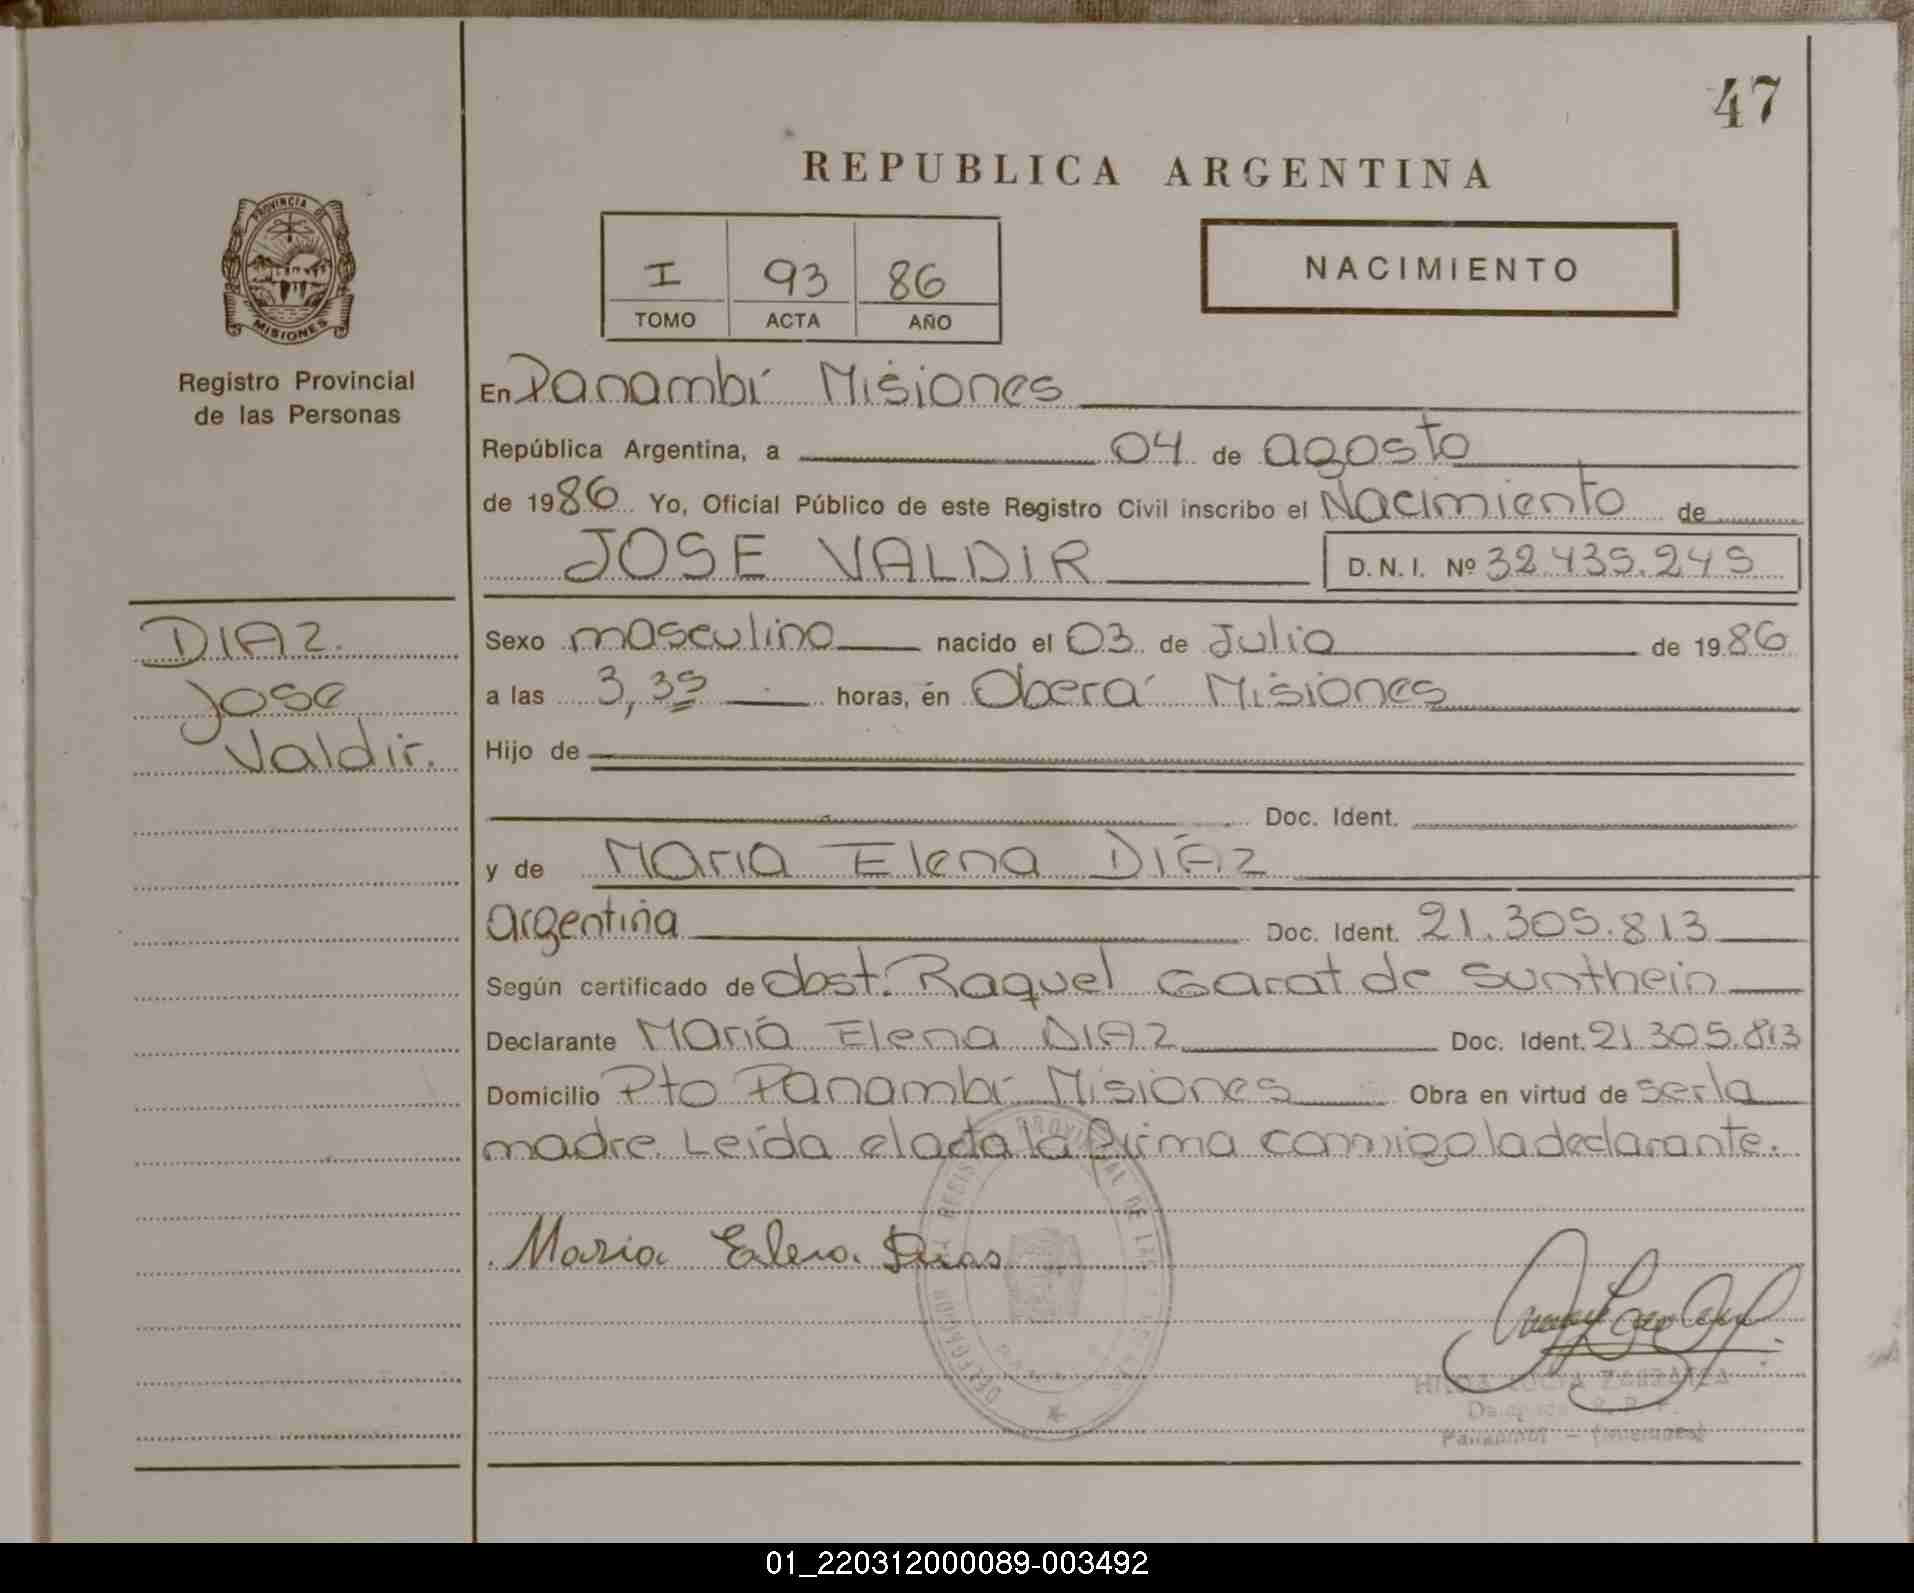 47
REPUBLICA ARGENTINA
PROVINCIA DE
MISIONES
I 93 86
TOMO ACTA AÑO
NACIMIENTO
Registro Provincial
de las Personas
En Panambí Misiones
República Argentina, a 04 de agosto
de 1986 Yo, Oficial Público de este Registro Civil inscribo el Nacimiento de
JOSE VALDIR D.N.I. Nº 32.435.245
DIAZ.
Jose
Valdir.
Sexo masculino nacido el 03 de Julio de 1986
a las 3,35 horas, en Oberá Misiones
Hijo de
Doc. Ident.
y de Maria Elena DÍAZ
argentina Doc. Ident. 21.305.813
Según certificado de obst. Raquel Garat de Sunthein
Declarante María Elena DIAZ Doc. Ident. 21.305.813
Domicilio Pto Panambí Misiones Obra en virtud de serla
madre. Leída el acta la firma conmigo la declarante.
Maria Elena Dias
HILDA LUCIA
Panambí - (Misiones)
01_220312000089-003492